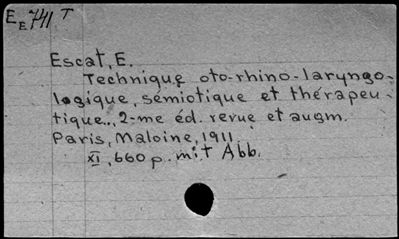 EE 741 T
Escat, E.
Technique oto-rhino-laryngo-
logique, sémiotique et thérapeu-
tique.., 2-me éd. revue et augm.
Paris, Maloine, 1911.
XI, 660 p. mit Abb.